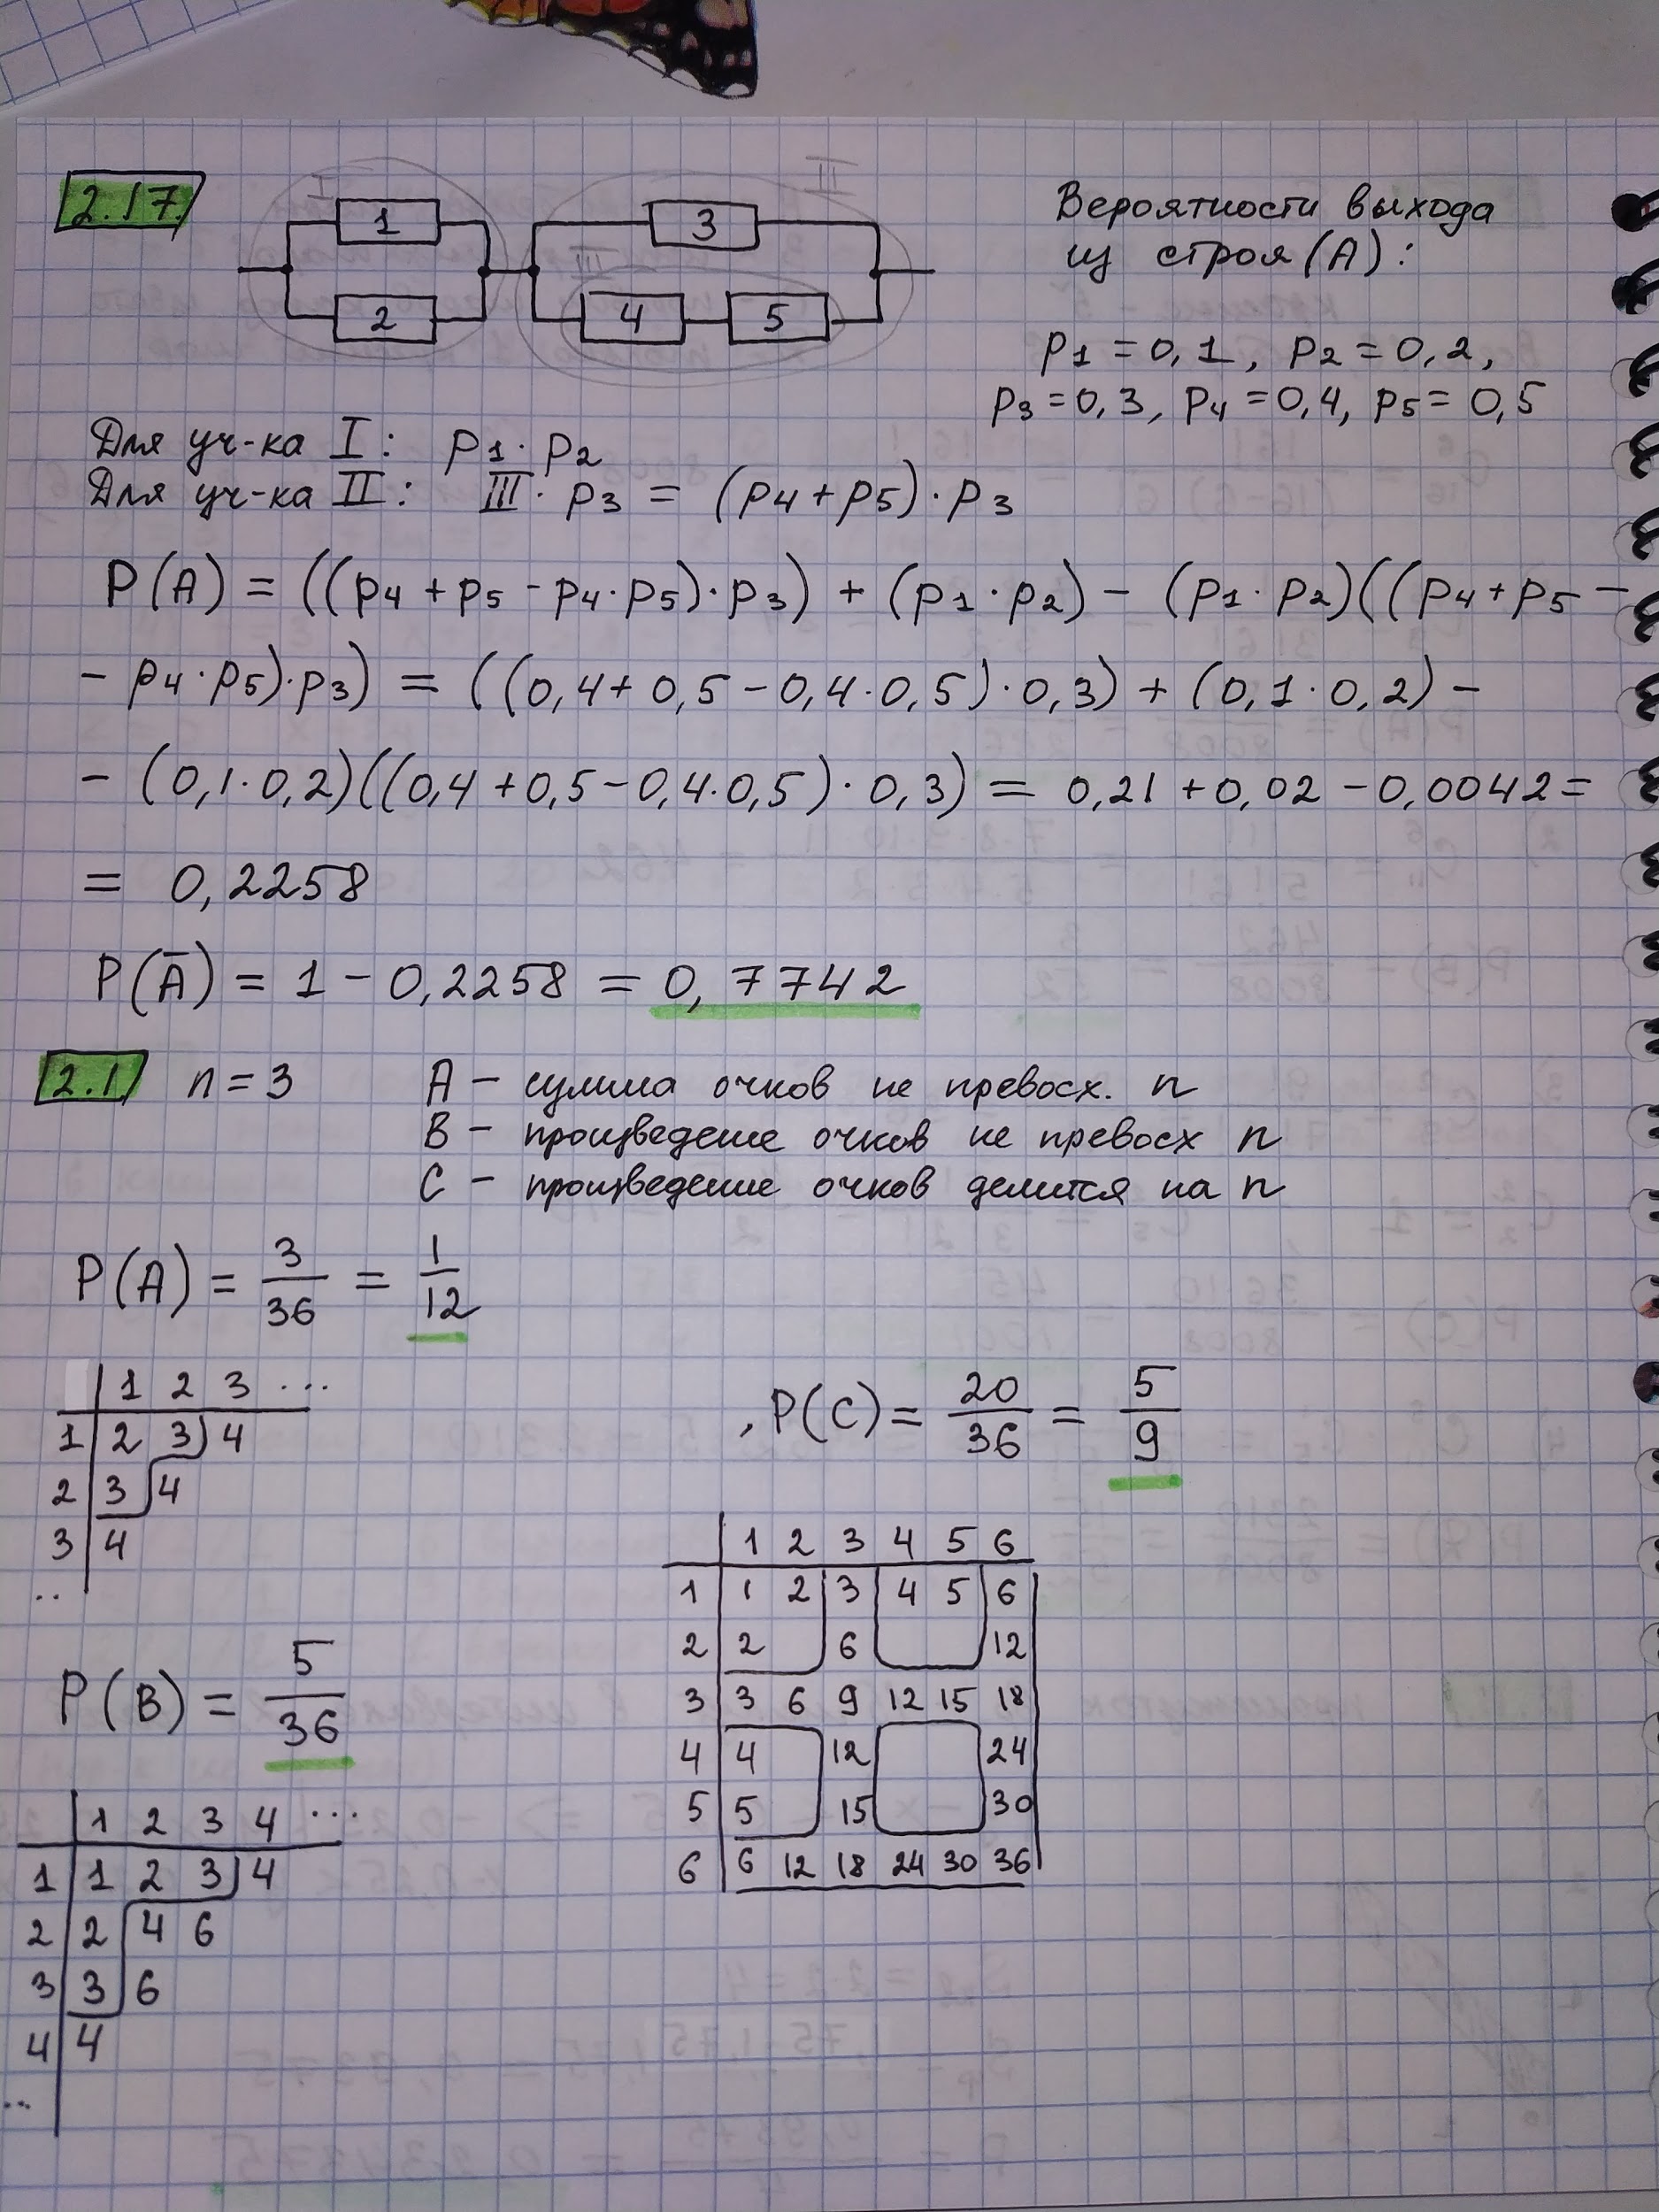 2.17.
I
II
1
3
III
2
4
5
Вероятности выхода
из строя (A):
p1 = 0,1, p2 = 0,2,
p3 = 0,3, p4 = 0,4, p5 = 0,5
Для уч-ка I: p1 · p2
Для уч-ка II: III · p3 = (p4 + p5) · p3
P(A) = ((p4 + p5 - p4 · p5) · p3) + (p1 · p2) - (p1 · p2)((p4 + p5 -
- p4 · p5) · p3) = ((0,4 + 0,5 - 0,4 · 0,5) · 0,3) + (0,1 · 0,2) -
- (0,1 · 0,2)((0,4 + 0,5 - 0,4 · 0,5) · 0,3) = 0,21 + 0,02 - 0,0042 =
= 0,2258
P(Ā) = 1 - 0,2258 = 0,7742
2.1. n = 3
A - сумма очков не превосх. n
B - произведение очков не превосх n
C - произведение очков делится на n
P(A) = 3/36 = 1/12
1 2 3 ...
1 2 3 4
2 3 4
3 4
..
P(B) = 5/36
1 2 3 4 ...
1 1 2 3 4
2 2 4 6
3 3 6
4 4
..
, P(C) = 20/36 = 5/9
1 2 3 4 5 6
1 1 2 3 4 5 6
2 2 6 12
3 3 6 9 12 15 18
4 4 12 24
5 5 15 30
6 6 12 18 24 30 36